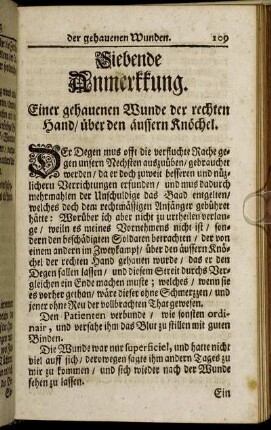 der gehauenen Wunden. 109
Siebende
Anmerkkung.
Einer gehauenen Wunde der rechten
Hand/ über den äussern Knöchel.
DEr Degen mus offt die verfluchte Rache ge-
gen unsern Nechsten auszuüben/ gebrauchet
werden/ da er doch zuweit besseren und nüz-
lichern Verrichtungen erfunden/ und mus dadurch
mehrmahlen der Unschuldige das Baad entgelten/
welches doch dem rechtmässigen Anfänger gebühret
hätte: Worüber ich aber nicht zu urtheilen verlan-
ge/ weiln es meines Vornehmens nicht ist/ son-
dern den beschädigten Soldaten betrachten/ der von
einem andern im Zweykampf/ über den äussern Knö-
chel der rechten Hand gehauen wurde/ das er den
Degen fallen lassen/ und diesem Streit durchs Ver-
gleichen ein Ende machen muste; welches/ wenn sie
es vorher gethan/ wäre dieser ohne Schmertzen/ und
jener ohne Reu der vollbrachten That gewesen.
Den Patienten verbunde/ wie sonsten ordi-
nair, und versahe ihm das Blut zu stillen mit guten
Binden.
Die Wunde war nur superficiel, und hatte nicht
viel auff sich/ derowegen sagte ihm andern Tages zu
mir zu kommen/ und sich wieder nach der Wunde
sehen zu lassen.
Ein